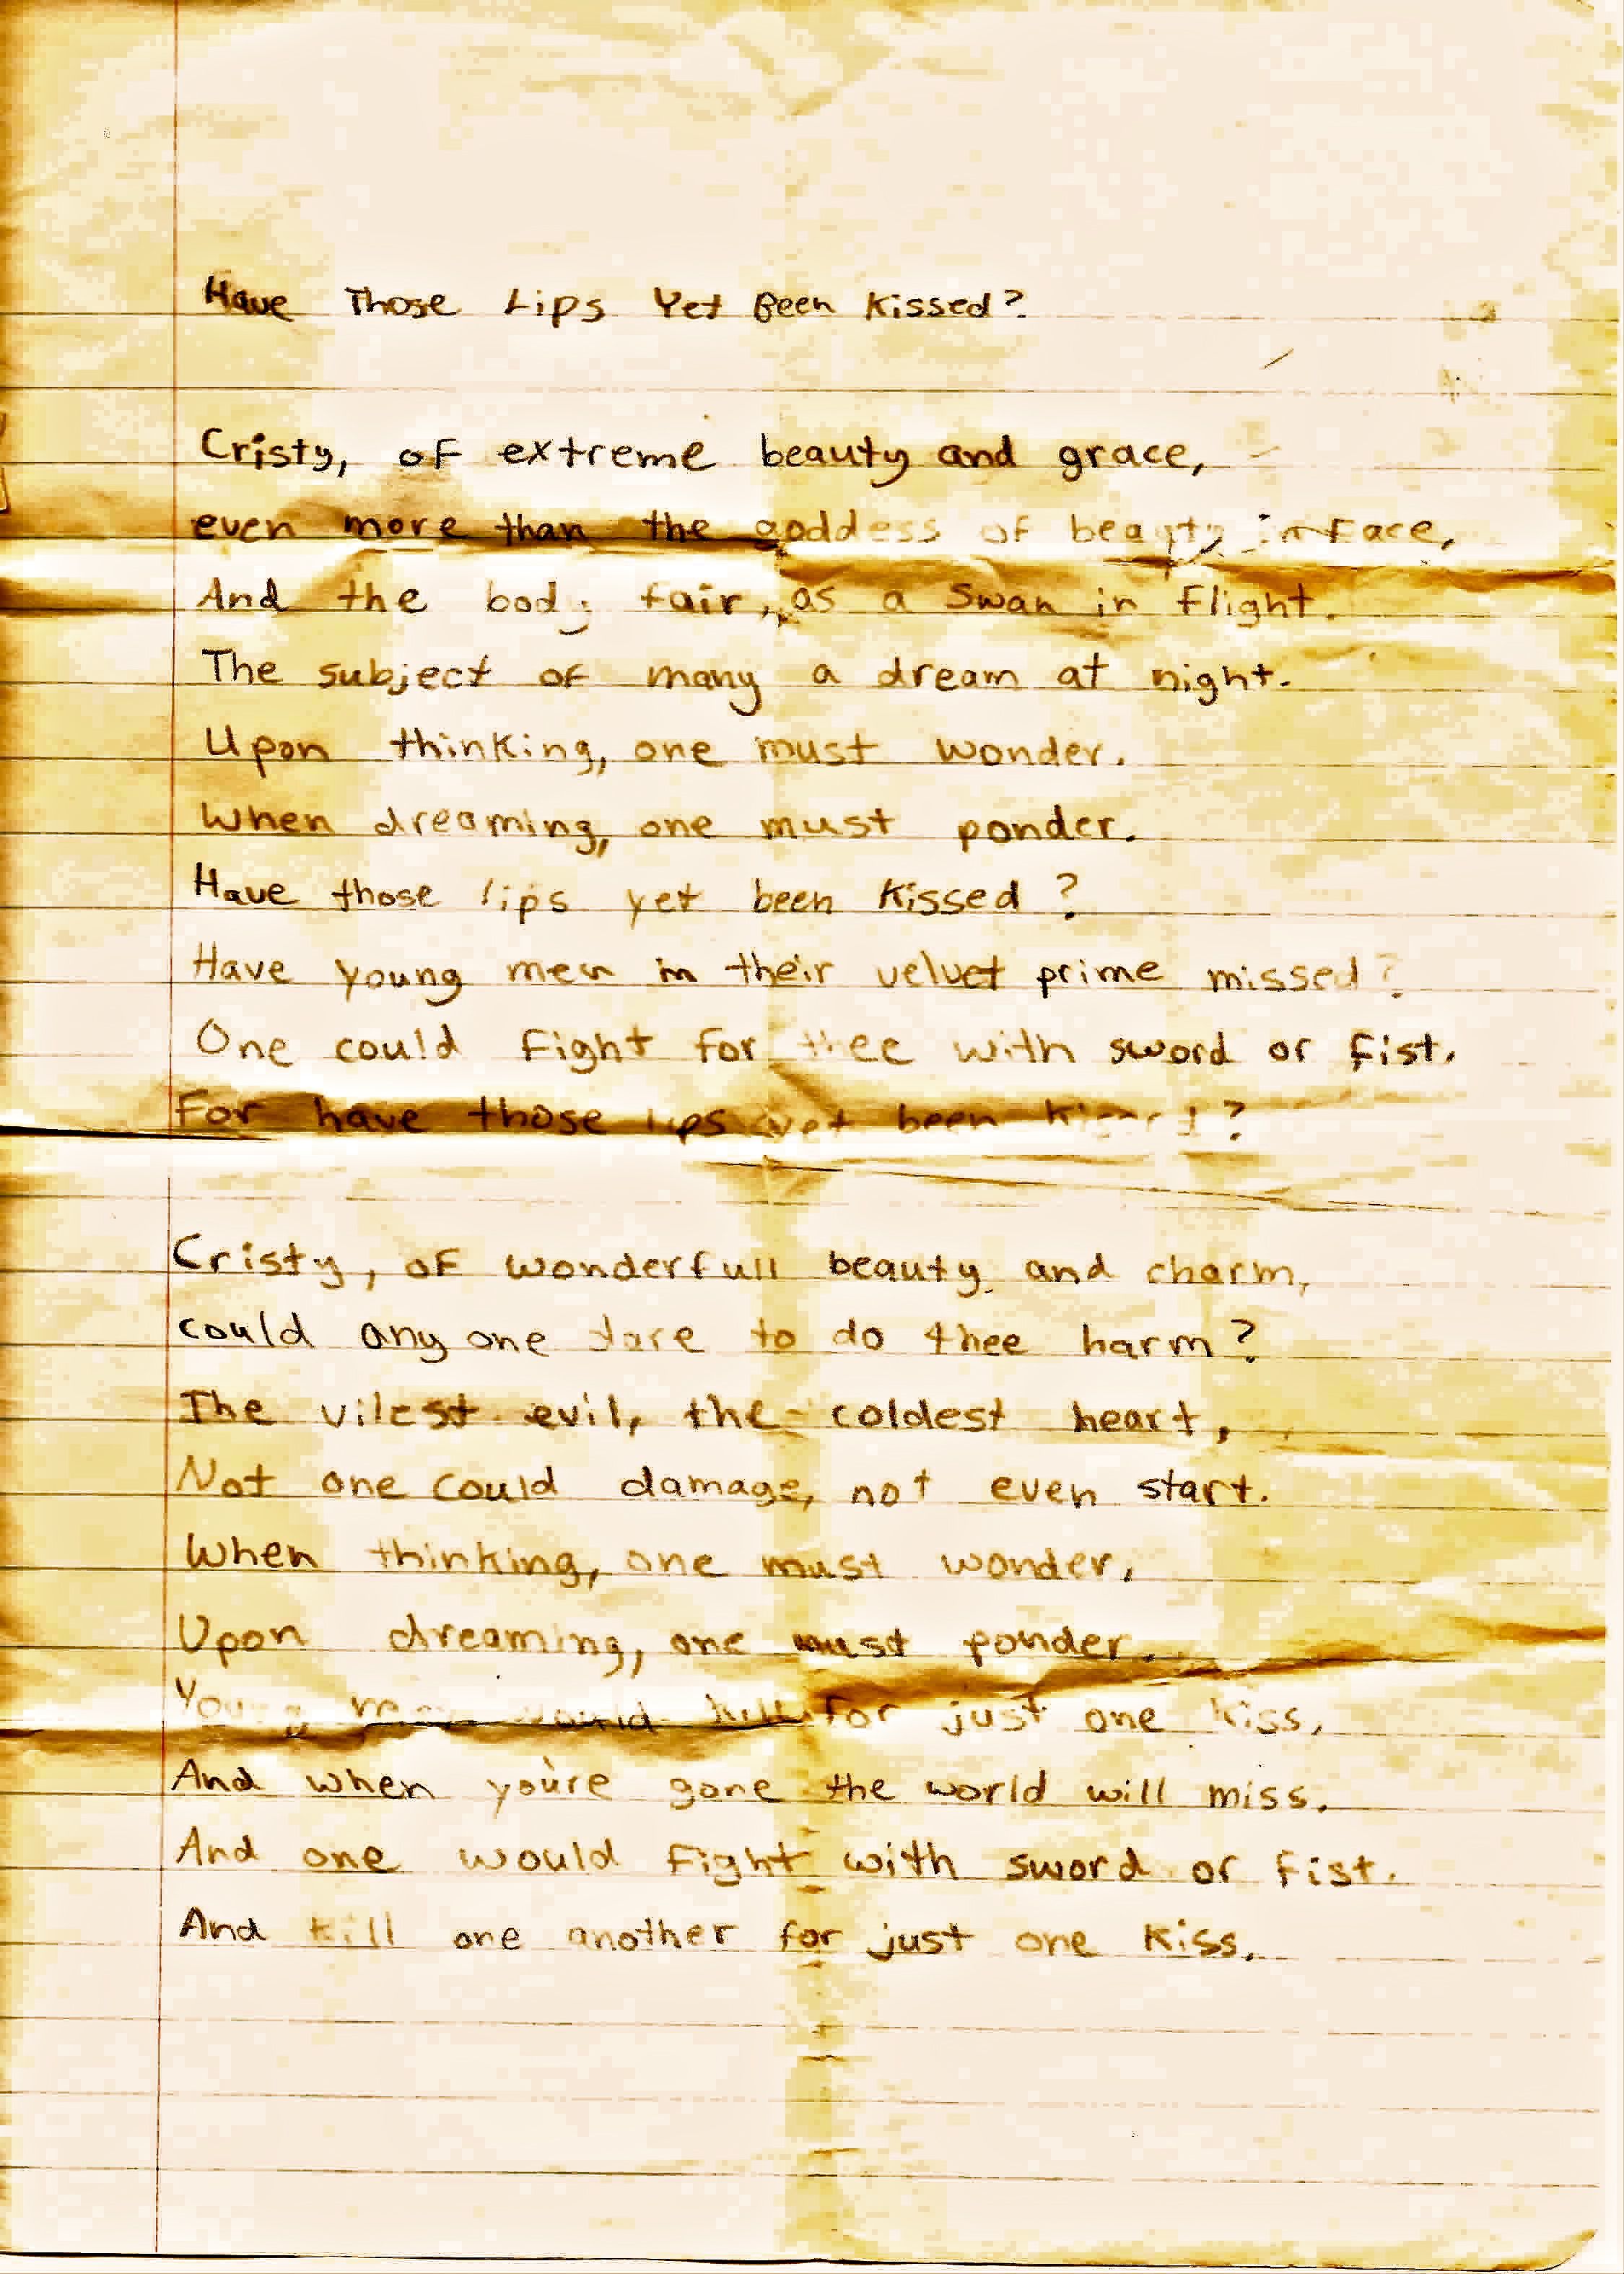 Have Those Lips Yet Been Kissed?
Cristy, of extreme beauty and grace,
even more than the goddess of beauty in face,
And the body fair, as a swan in flight.
The subject of many a dream at night.
Upon thinking, one must wonder.
When dreaming, one must ponder.
Have those lips yet been kissed?
Have young men in their velvet prime missed?
One could fight for thee with sword or fist.
For have those lips yet been kissed?
Cristy, of wonderfull beauty and charm,
could any one dare to do thee harm?
The vilest evil, the coldest heart,
Not one could damage, not even start.
When thinking, one must wonder,
Upon dreaming, one must ponder.
Young men would kill for just one kiss,
And when you're gone the world will miss.
And one would fight with sword or fist.
And kill one another for just one kiss.